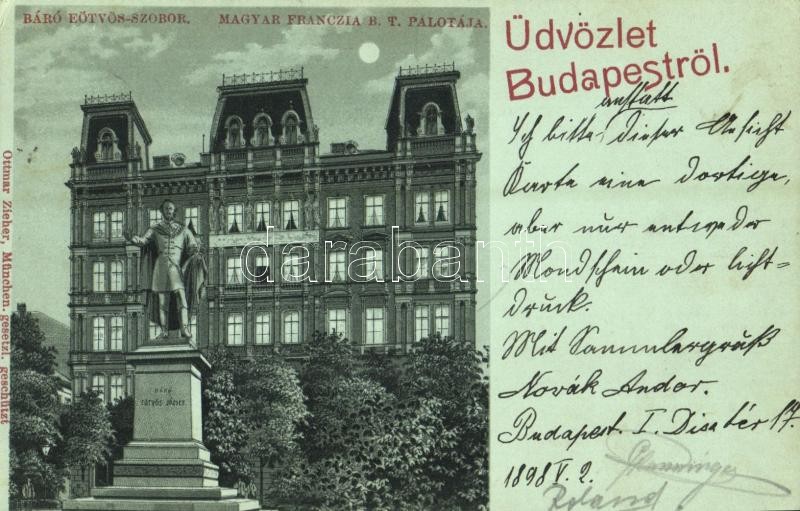 BÁRÓ EÖTVÖS-SZOBOR. MAGYAR FRANCZIA B. T. PALOTÁJA.
Üdvözlet
Budapestről.
anstatt
Ich bitte, dieser Ansicht
Karte eine dortige,
aber nur entweder
Mondschein oder licht=
druck.
Mit Sammlergruß
Novák Andor.
Budapest. I. Disz tér 17.
1898 V. 2.
Roland
BÁRÓ
EÖTVÖS JÓZSEF.
Ottmar Zieher, München. gesetzl. geschützt
darabanth.com